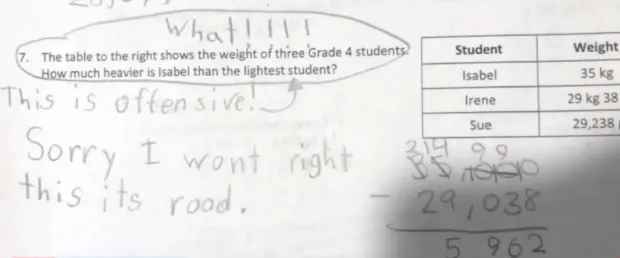 What!!!!
7. The table to the right shows the weight of three Grade 4 students.
How much heavier is Isabel than the lightest student?
This is offensive!
Sorry I wont right
this its road.
Student Weight
Isabel 35 kg
Irene 29 kg 38
Sue 29,238
314 99
35
- 29,038
5 962